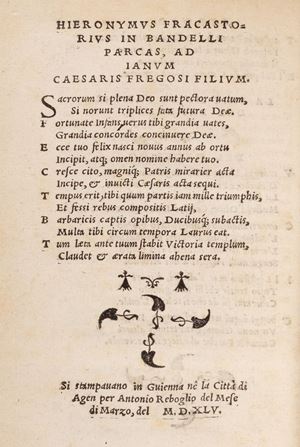 HIERONYMVS FRACASTO-
RIVS IN BANDELLI
PARCAS, AD
IANVM
CAESARIS FREGOSI FILIVM.
Sacrorum si plena Deo sunt pectora uatum,
Si norunt triplices fata futura Deæ.
Fortunate Infans, uerus tibi grandia uates,
Grandia concordes concinuere Deæ.
Ecce tuo felix nasci nouus annus ab ortu
Incipit, atq; omen nomine habere tuo.
Cresce cito, magniq; Patris mirarier acta
Incipe, & inuicti Cæsaris acta sequi.
Tempus erit, tibi quum partis iam mille triumphis,
Et fessi rebus compositis Latij,
Barbaricis captis opibus, Ducibusq; subactis,
Multa tibi circum tempora Laurus eat.
Tum læta ante tuum stabit Victoria templum,
Claudet & ærata limina ahena sera.
Si stampauano in Guienna ne la Città di
Agen per Antonio Reboglio del Mese
di Marzo, del M. D. XLV.